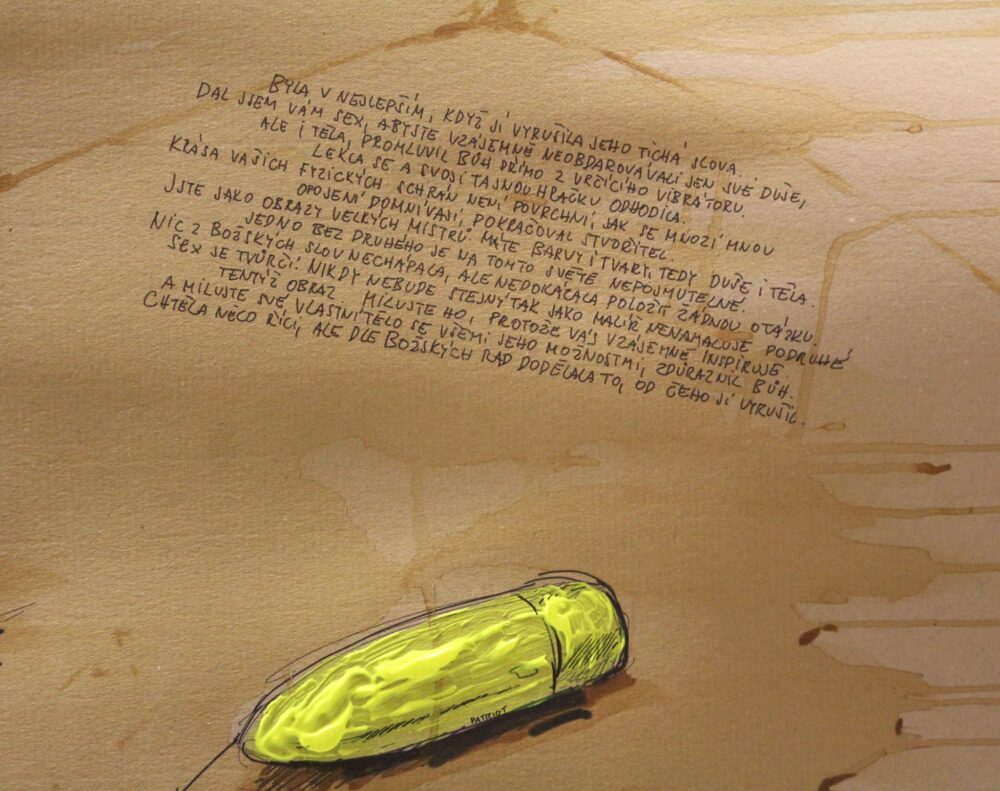 BYLA V NEJLEPŠÍM, KDYŽ JÍ VYRUŠILA JEHO TICHÁ SLOVA...
DAL JSEM VÁM SEX, ABYSTE VZÁJEMNĚ NEOBDAROVÁVALI JEN SVÉ DUŠE,
ALE I TĚLA, PROMLUVIL BŮH PŘÍMO Z VRČÍCÍHO VIBRÁTORU.
LEKLA SE A SVOJÍ TAJNOU HRAČKU ODHODILA.
KRÁSA VAŠICH FYZICKÝCH SCHRÁN NENÍ POVRCHNÍ, JAK SE MNOZÍ MNOU
OPOJENÍ DOMNÍVAJÍ, POKRAČOVAL STVOŘITEL.
JSTE JAKO OBRAZY VELKÝCH MISTRŮ. MÁTE BARVY I TVARY, TEDY DUŠE I TĚLA.
JEDNO BEZ DRUHÉHO JE NA TOMTO SVĚTĚ NEPOJMUTELNÉ.
NIC Z BOŽSKÝCH SLOV NECHÁPALA, ALE NEDOKÁZALA POLOŽIT ŽÁDNOU OTÁZKU.
SEX JE TVŮRČÍ. NIKDY NEBUDE STEJNÝ TAK JAKO MALÍŘ NENAMALUJE PODRUHÉ
TENTÝŽ OBRAZ. MILUJTE HO, PROTOŽE VÁS VZÁJEMNĚ INSPIRUJE.
A MILUJTE SVÉ VLASTNÍ TĚLO SE VŠEMI JEHO MOŽNOSTMI, ZDŮRAZNIL BŮH.
CHTĚLA NĚCO ŘÍCI, ALE DLE BOŽSKÝCH RAD DODĚLALA TO, OD ČEHO JÍ VYRUŠIL.
PATRIOT